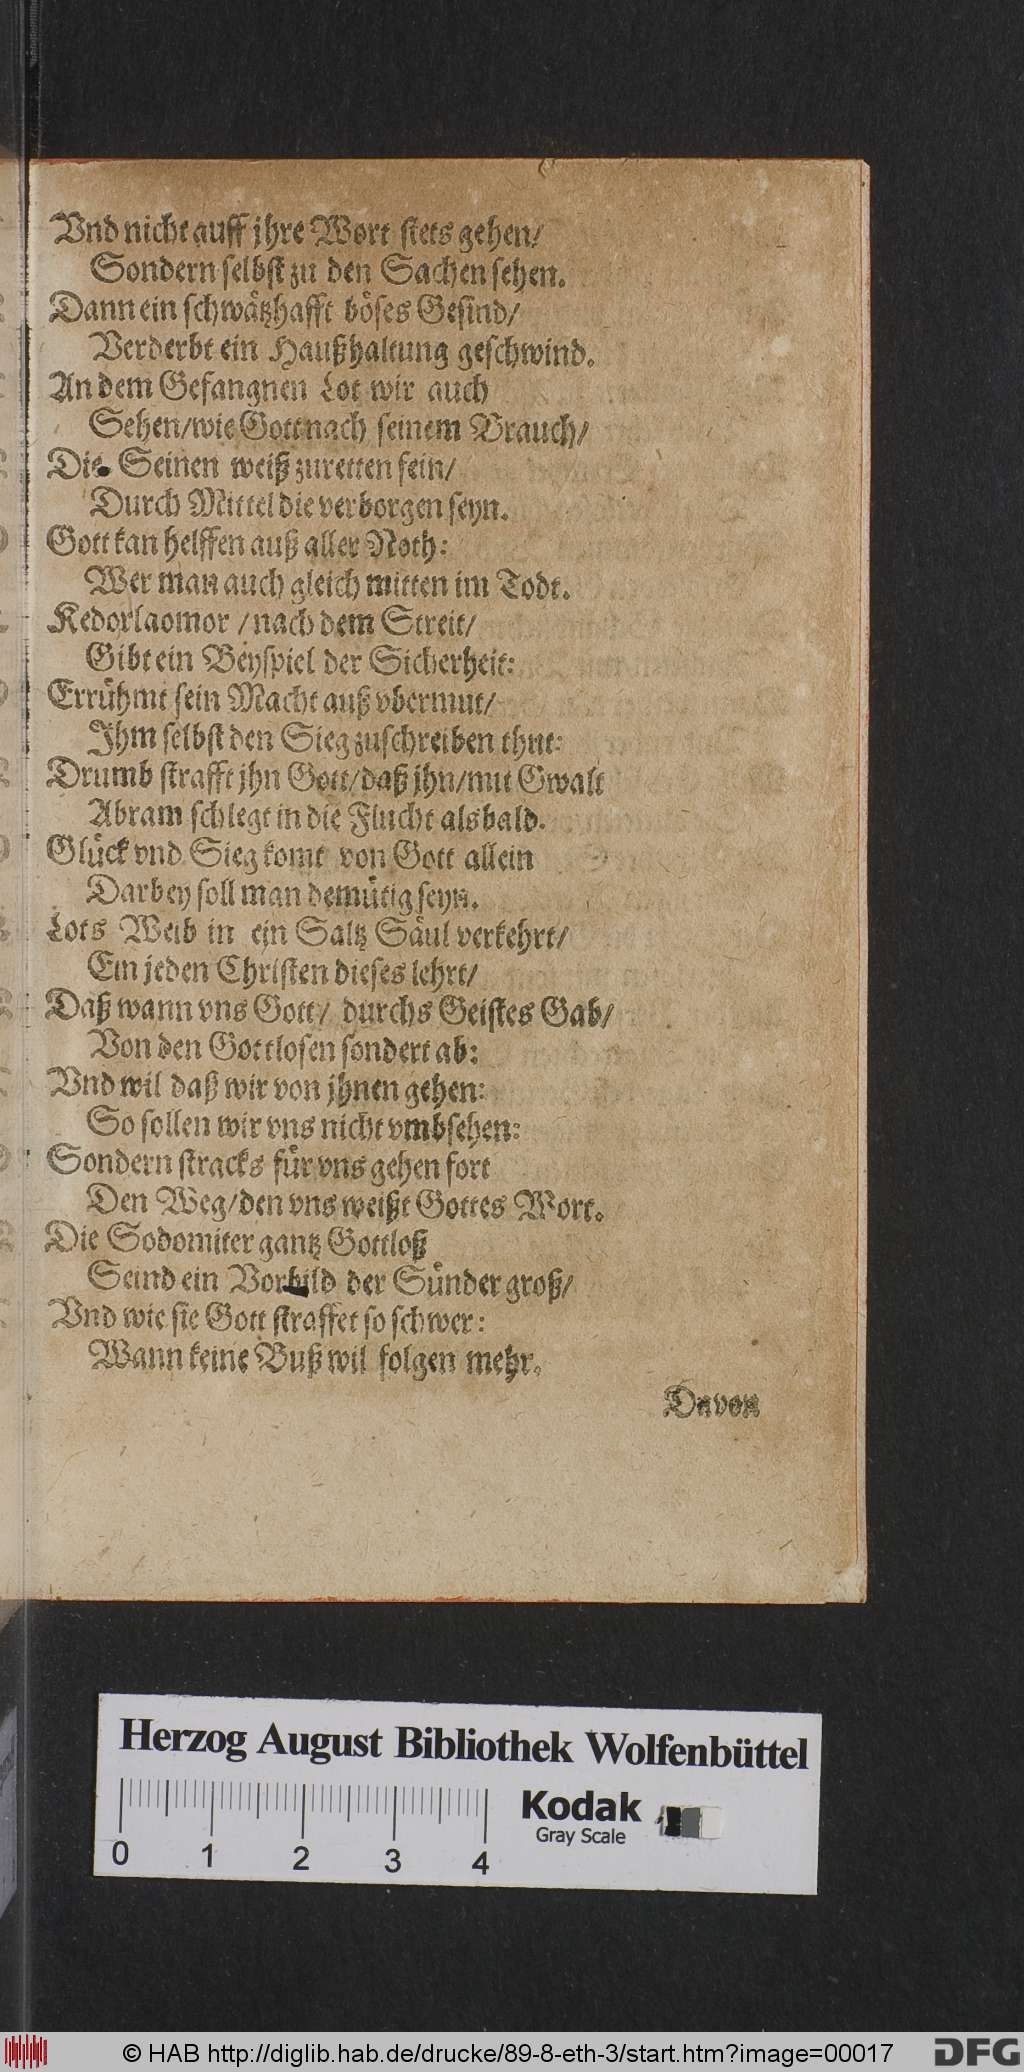 Vnd nicht auff jhre Wort stets gehen/
Sondern selbst zu den Sachen sehen.
Dann ein schwätzhafft böses Gesind/
Verderbt ein Haußhaltung geschwind.
An dem Gefangnen Lot wir auch
Sehen/wie Gott nach seinem Brauch/
Die Seinen weiß zuretten fein/
Durch Mittel die verborgen seyn.
Gott kan helffen auß aller Noth:
Wer man auch gleich mitten im Todt.
Kedorlaomor /nach dem Streit/
Gibt ein Beyspiel der Sicherheit:
Er rühmt sein Macht auß vbermut/
Ihm selbst den Sieg zuschreiben thut:
Drumb strafft jhn Gott/daß jhn/mit Gwalt
Abram schlegt in die Flucht alsbald.
Glück vnd Sieg komt von Gott allein
Darbey soll man demütig seyn.
Lots Weib in ein Saltz Säul verkehrt/
Ein jeden Christen dieses lehrt/
Daß wann vns Gott/ durchs Geistes Gab/
Von den Gottlosen sondert ab:
Vnd wil daß wir von jhnen gehen:
So sollen wir vns nicht vmbsehen:
Sondern stracks für vns gehen fort
Den Weg/den vns weißt Gottes Wort.
Die Sodomiter gantz Gottloß
Seind ein Vorbild der Sünder groß/
Vnd wie sie Gott straffet so schwer:
Wann keine Buß wil folgen mehr.
Davon
Herzog August Bibliothek Wolfenbüttel
Kodak
Gray Scale
0 1 2 3 4
© HAB http://diglib.hab.de/drucke/89-8-eth-3/start.htm?image=00017
DFG